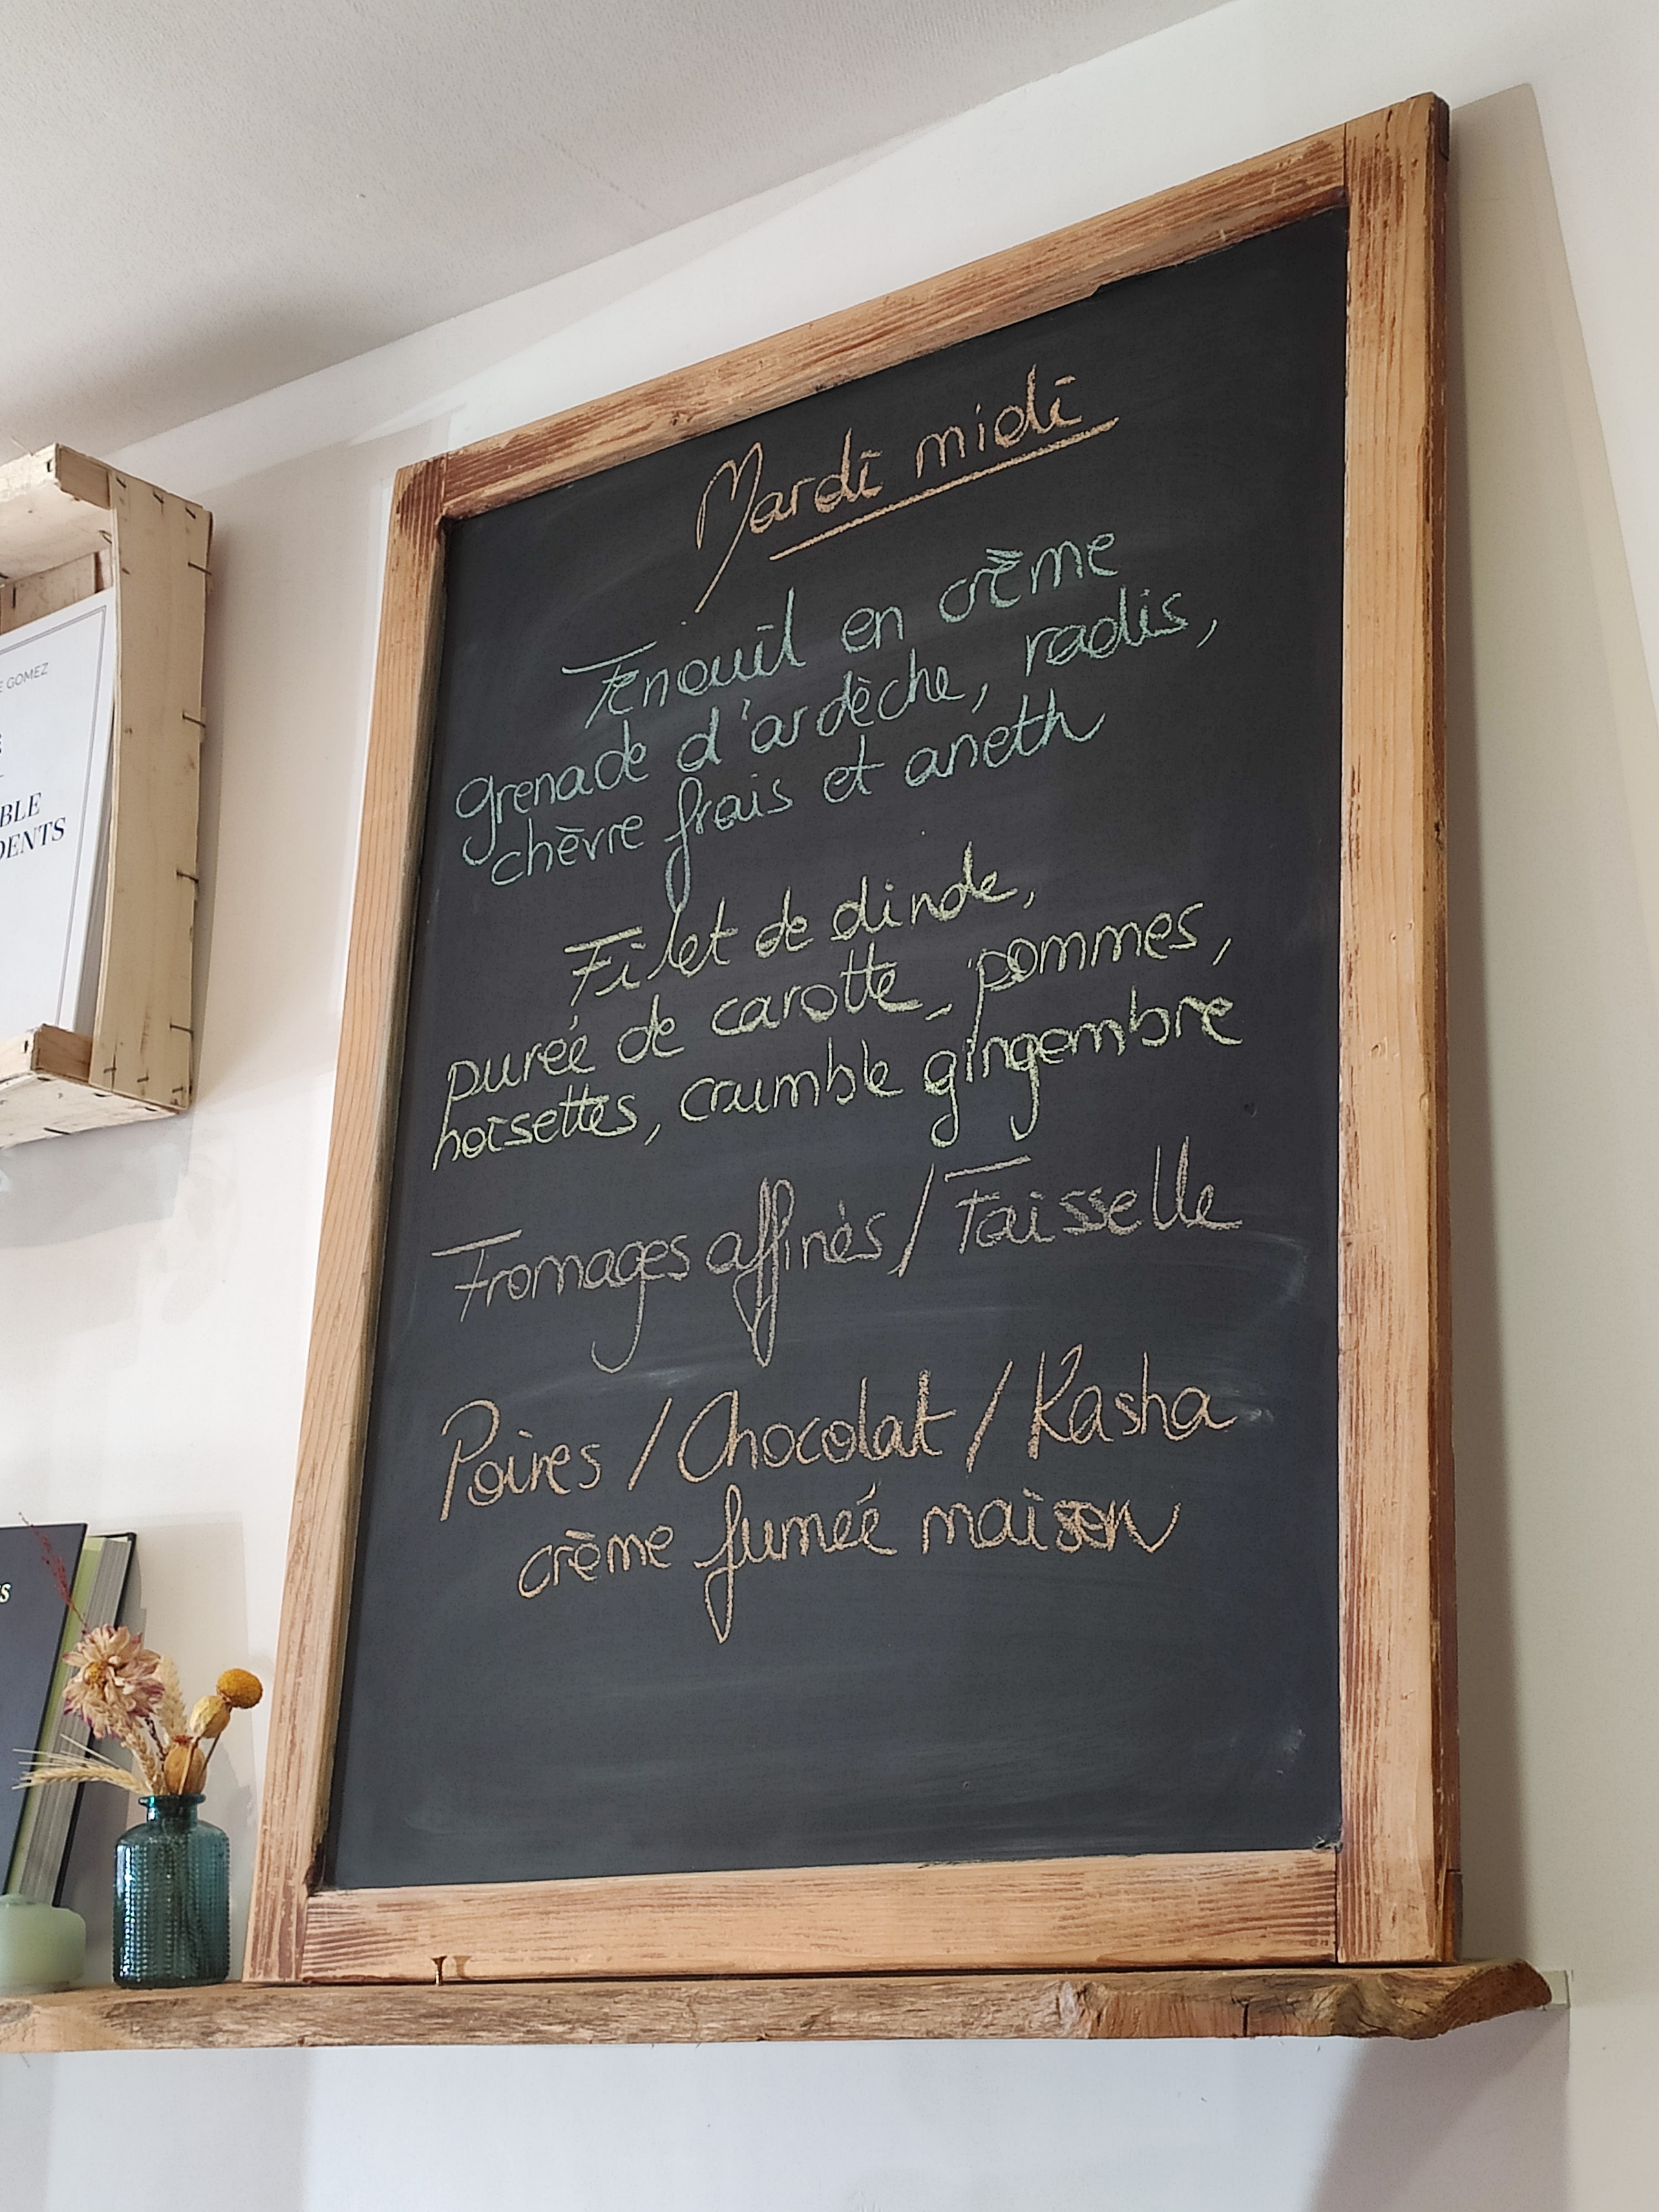 Mardi midi
Fenouil en crème
grenade d'ardèche, radis,
chèvre frais et aneth
Filet de dinde,
purée de carotte, pommes,
noisettes, crumble gingembre
Fromages affinés / Faisselle
Poires / Chocolat / Kasha
crème fumée maison
GOMEZ